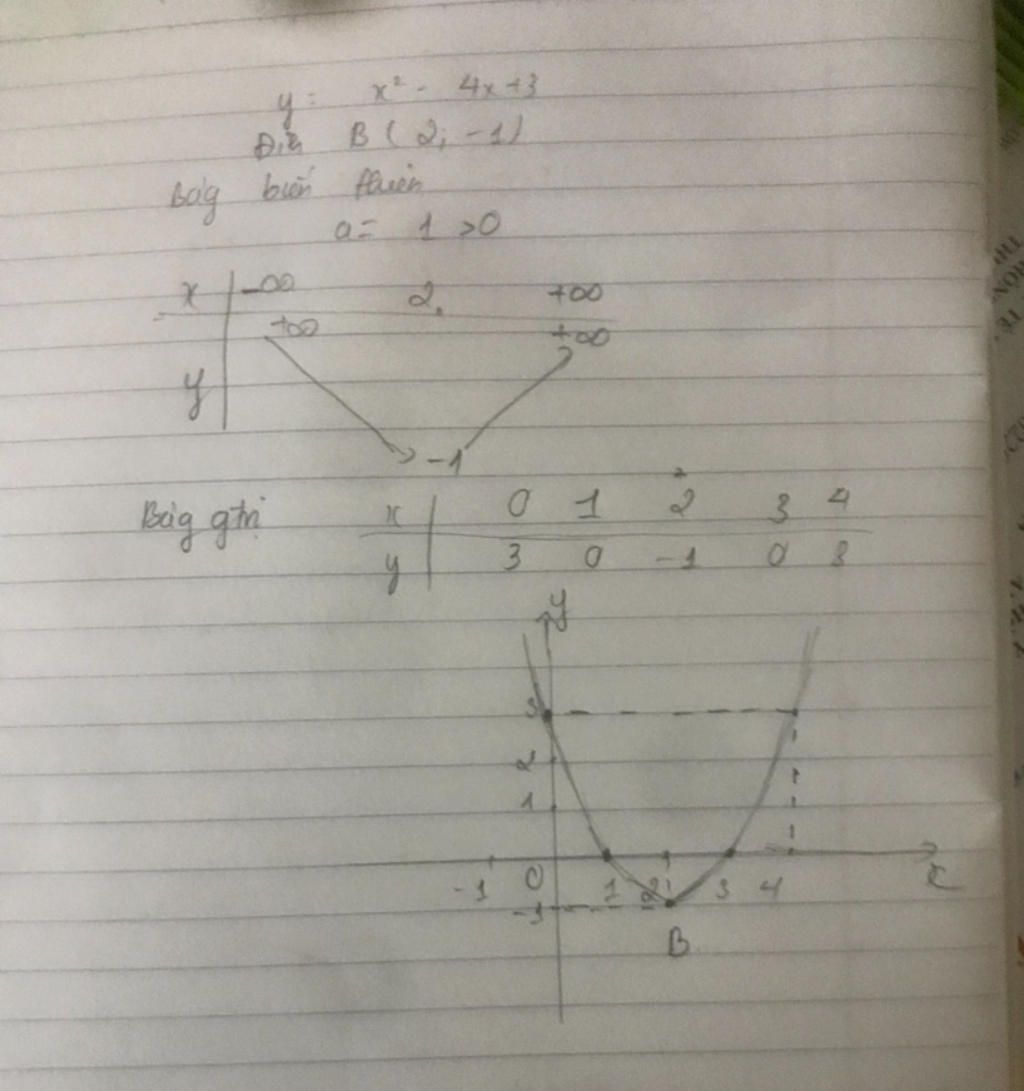 y = x² - 4x+3
Đỉnh B ( 2; -1)
Bảg biến thiên
a = 1 >0
x -∞ 2 +∞
+∞ +∞
y
-1
Bảg gtrị x 0 1 2 3 4
y 3 0 -1 0 3
y
3
2
1
-1 0 1 2 3 4 x
-1
B